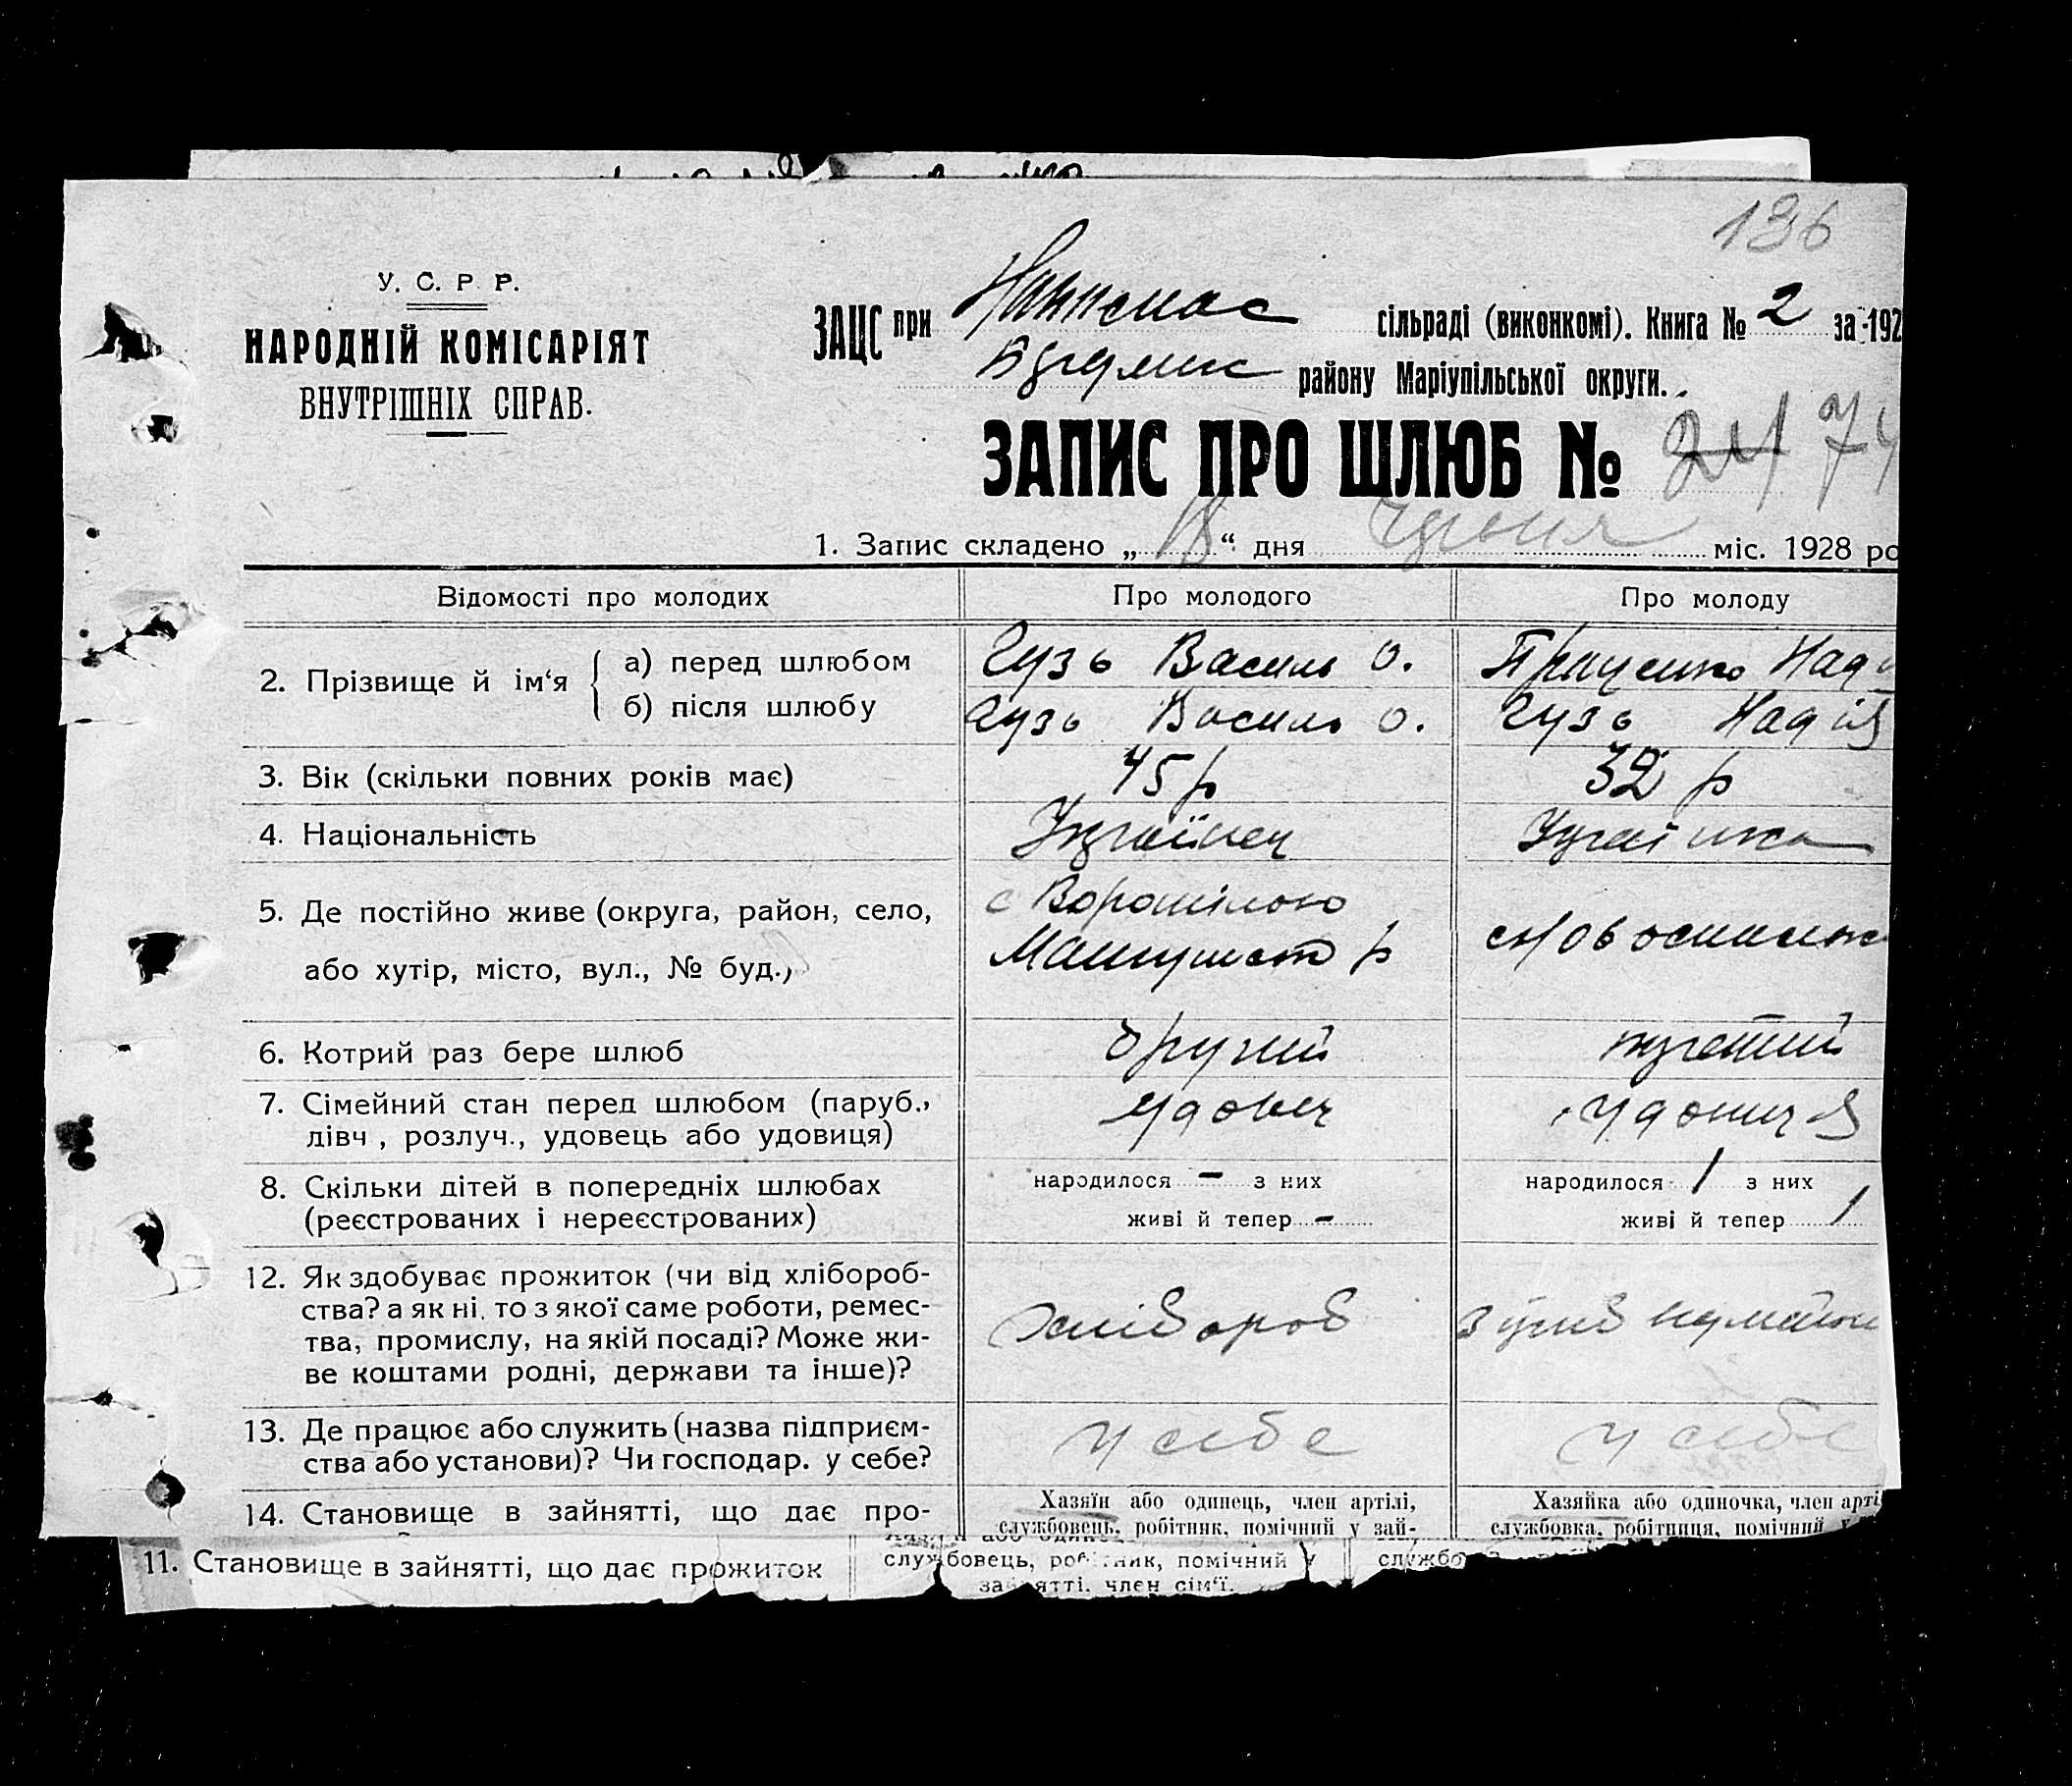 136
У. С. Р. Р.
НАРОДНІЙ КОМІСАРІЯТ
ВНУТРІШНІХ СПРАВ.
ЗАЦС при сільраді (виконкомі). Книга № 2 за 192
району Маріупільської округи.
ЗАПИС ПРО ШЛЮБ № 24 74
1. Запис складено „18“ дня міс. 1928 ро
Відомості про молодих Про молодого Про молоду
2. Прізвище й ім‘я
а) перед шлюбом Гузь Василь О.
б) після шлюбу Гузь Василь О. Гузь Надія
3. Вік (скільки повних років має) 45 р 32 р
4. Національність Українец Українка
5. Де постійно живе (округа, район, село,
або хутір, місто, вул., № буд.,
6. Котрий раз бере шлюб другий третий
7. Сімейний стан перед шлюбом (паруб.,
дівч , розлуч., удовець або удовиця) удовец удовиця
8. Скільки дітей в попередніх шлюбах
(реєстрованих і нереєстрованих)
народилося – з них
живі й тепер –
народилося 1 з них
живі й тепер 1
12. Як здобуває прожиток (чи від хлібороб-
ства? а як ні, то з якої саме роботи, ремес-
тва, промислу, на якій посаді? Може жи-
ве коштами родні, держави та інше)?
хлібороб
13. Де працює або служить (назва підприєм-
ства або установи)? Чи господар. у себе?
у себе у себе
14. Становище в зайнятті, що дає про-
Хазяїн або одинець, член артілі,
службовець, робітник, помічний у зай-
Хазяйка або одиночка, член арті
службовка, робітниця, помічний у
11. Становище в зайнятті, що дає прожиток
службовець, робітник, помічний у
зайнятті, член сім‘ї.
службо